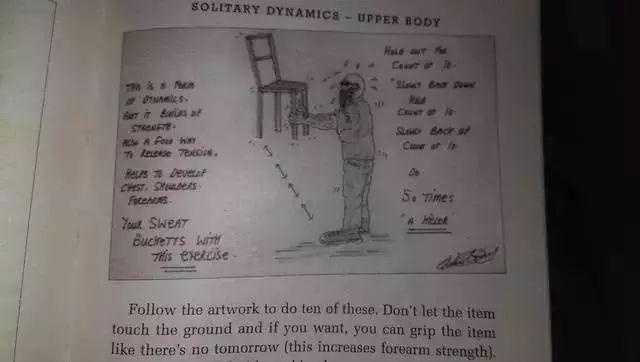 SOLITARY DYNAMICS – UPPER BODY
THIS IS A FORM
OF DYNAMICS.
BUT IT BUILDS UP
STRENGTH.
ALSO A GOOD WAY
TO RELEASE TENSION.
HELPS TO DEVELOP
CHEST. SHOULDERS
FOREARMS.
YOUR SWEAT
BUCKETTS WITH
THIS EXERCISE.
HOLD OUT FOR
COUNT OF 10.
SLOWLY BACK DOWN
COUNT OF 10.
SLOWLY BACK UP
COUNT OF 10.
DO
50 TIMES
"A KILLER"
Follow the artwork to do ten of these. Don't let the item
touch the ground and if you want, you can grip the item
like there's no tomorrow (this increases forearm strength).